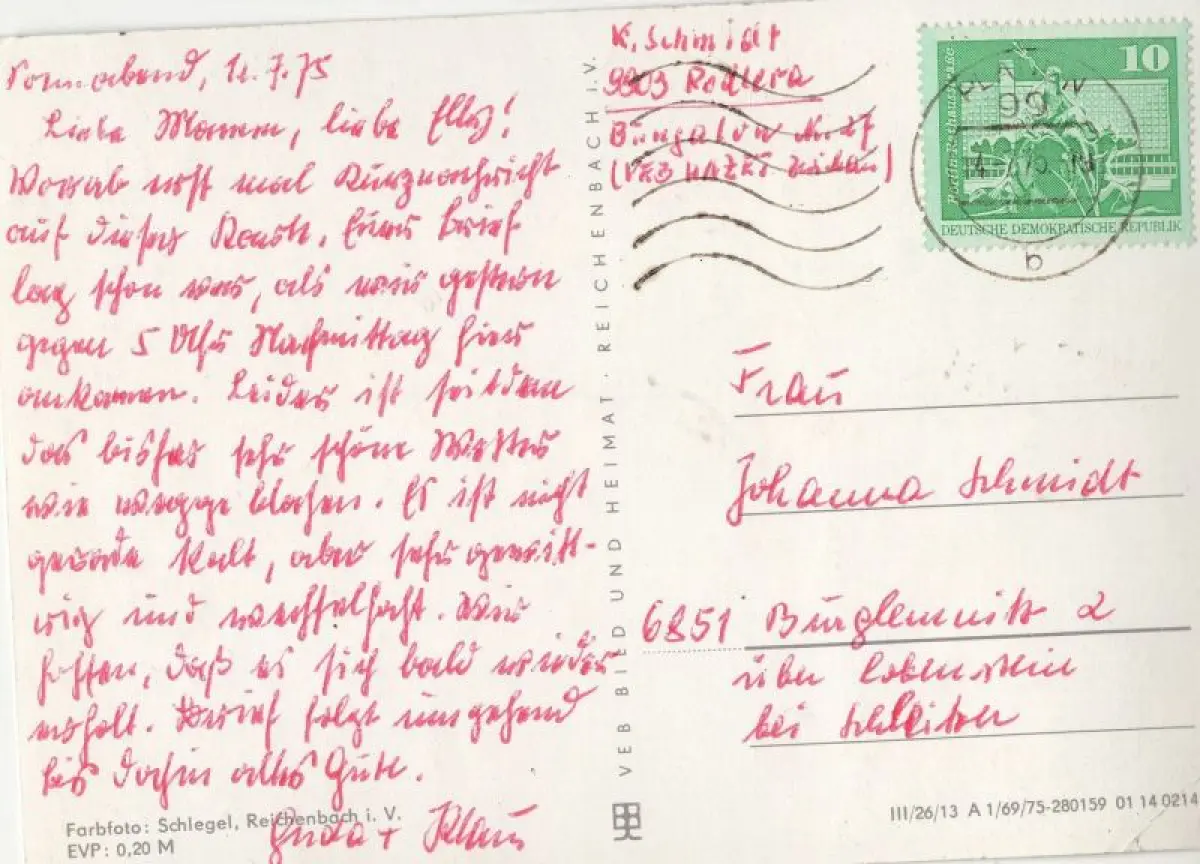 Sonnabend, 12.7.75
Liebe Mamm, liebe Elly!
Vorab erst mal Kurznachricht
auf dieser Karte. Euer Brief
lag schon vor, als wir gestern
gegen 5 Uhr Nachmittag hier
ankamen. Leider ist seitdem
das bisher sehr schöne Wetter
wie weggeblasen. Es ist nicht
gerade kalt, aber sehr gewitt-
rig und wechselhaft. Wir
hoffen, daß es sich bald wieder
erholt. Brief folgt umgehend
bis dahin alles Gute.
+ Klaus
Farbfoto: Schlegel, Reichenbach i. V.
EVP: 0,20 M
VEB BILD UND HEIMAT · REICHENBACH i. V.
K. Schmidt
9903
Bungalow
(VEB
10
Berlin · Rathausstraße
DEUTSCHE DEMOKRATISCHE REPUBLIK
PLAUEN
99
b
Frau
Johanna Schmidt
6851 Burglemnitz 2
über Lobenstein
bei Schleitz
III/26/13 A 1/69/75-280159 01 14 0214